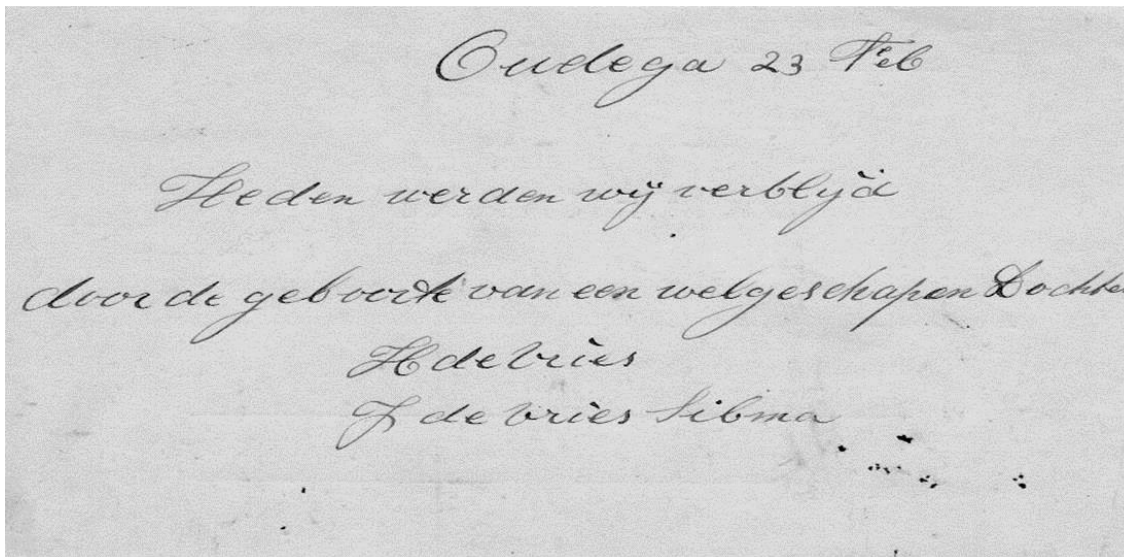 Oudega 23 Feb
Heden werden wij verblijd
door de geboorte van een welgeschapen Dochter
H de Vries
J de Vries Sibma